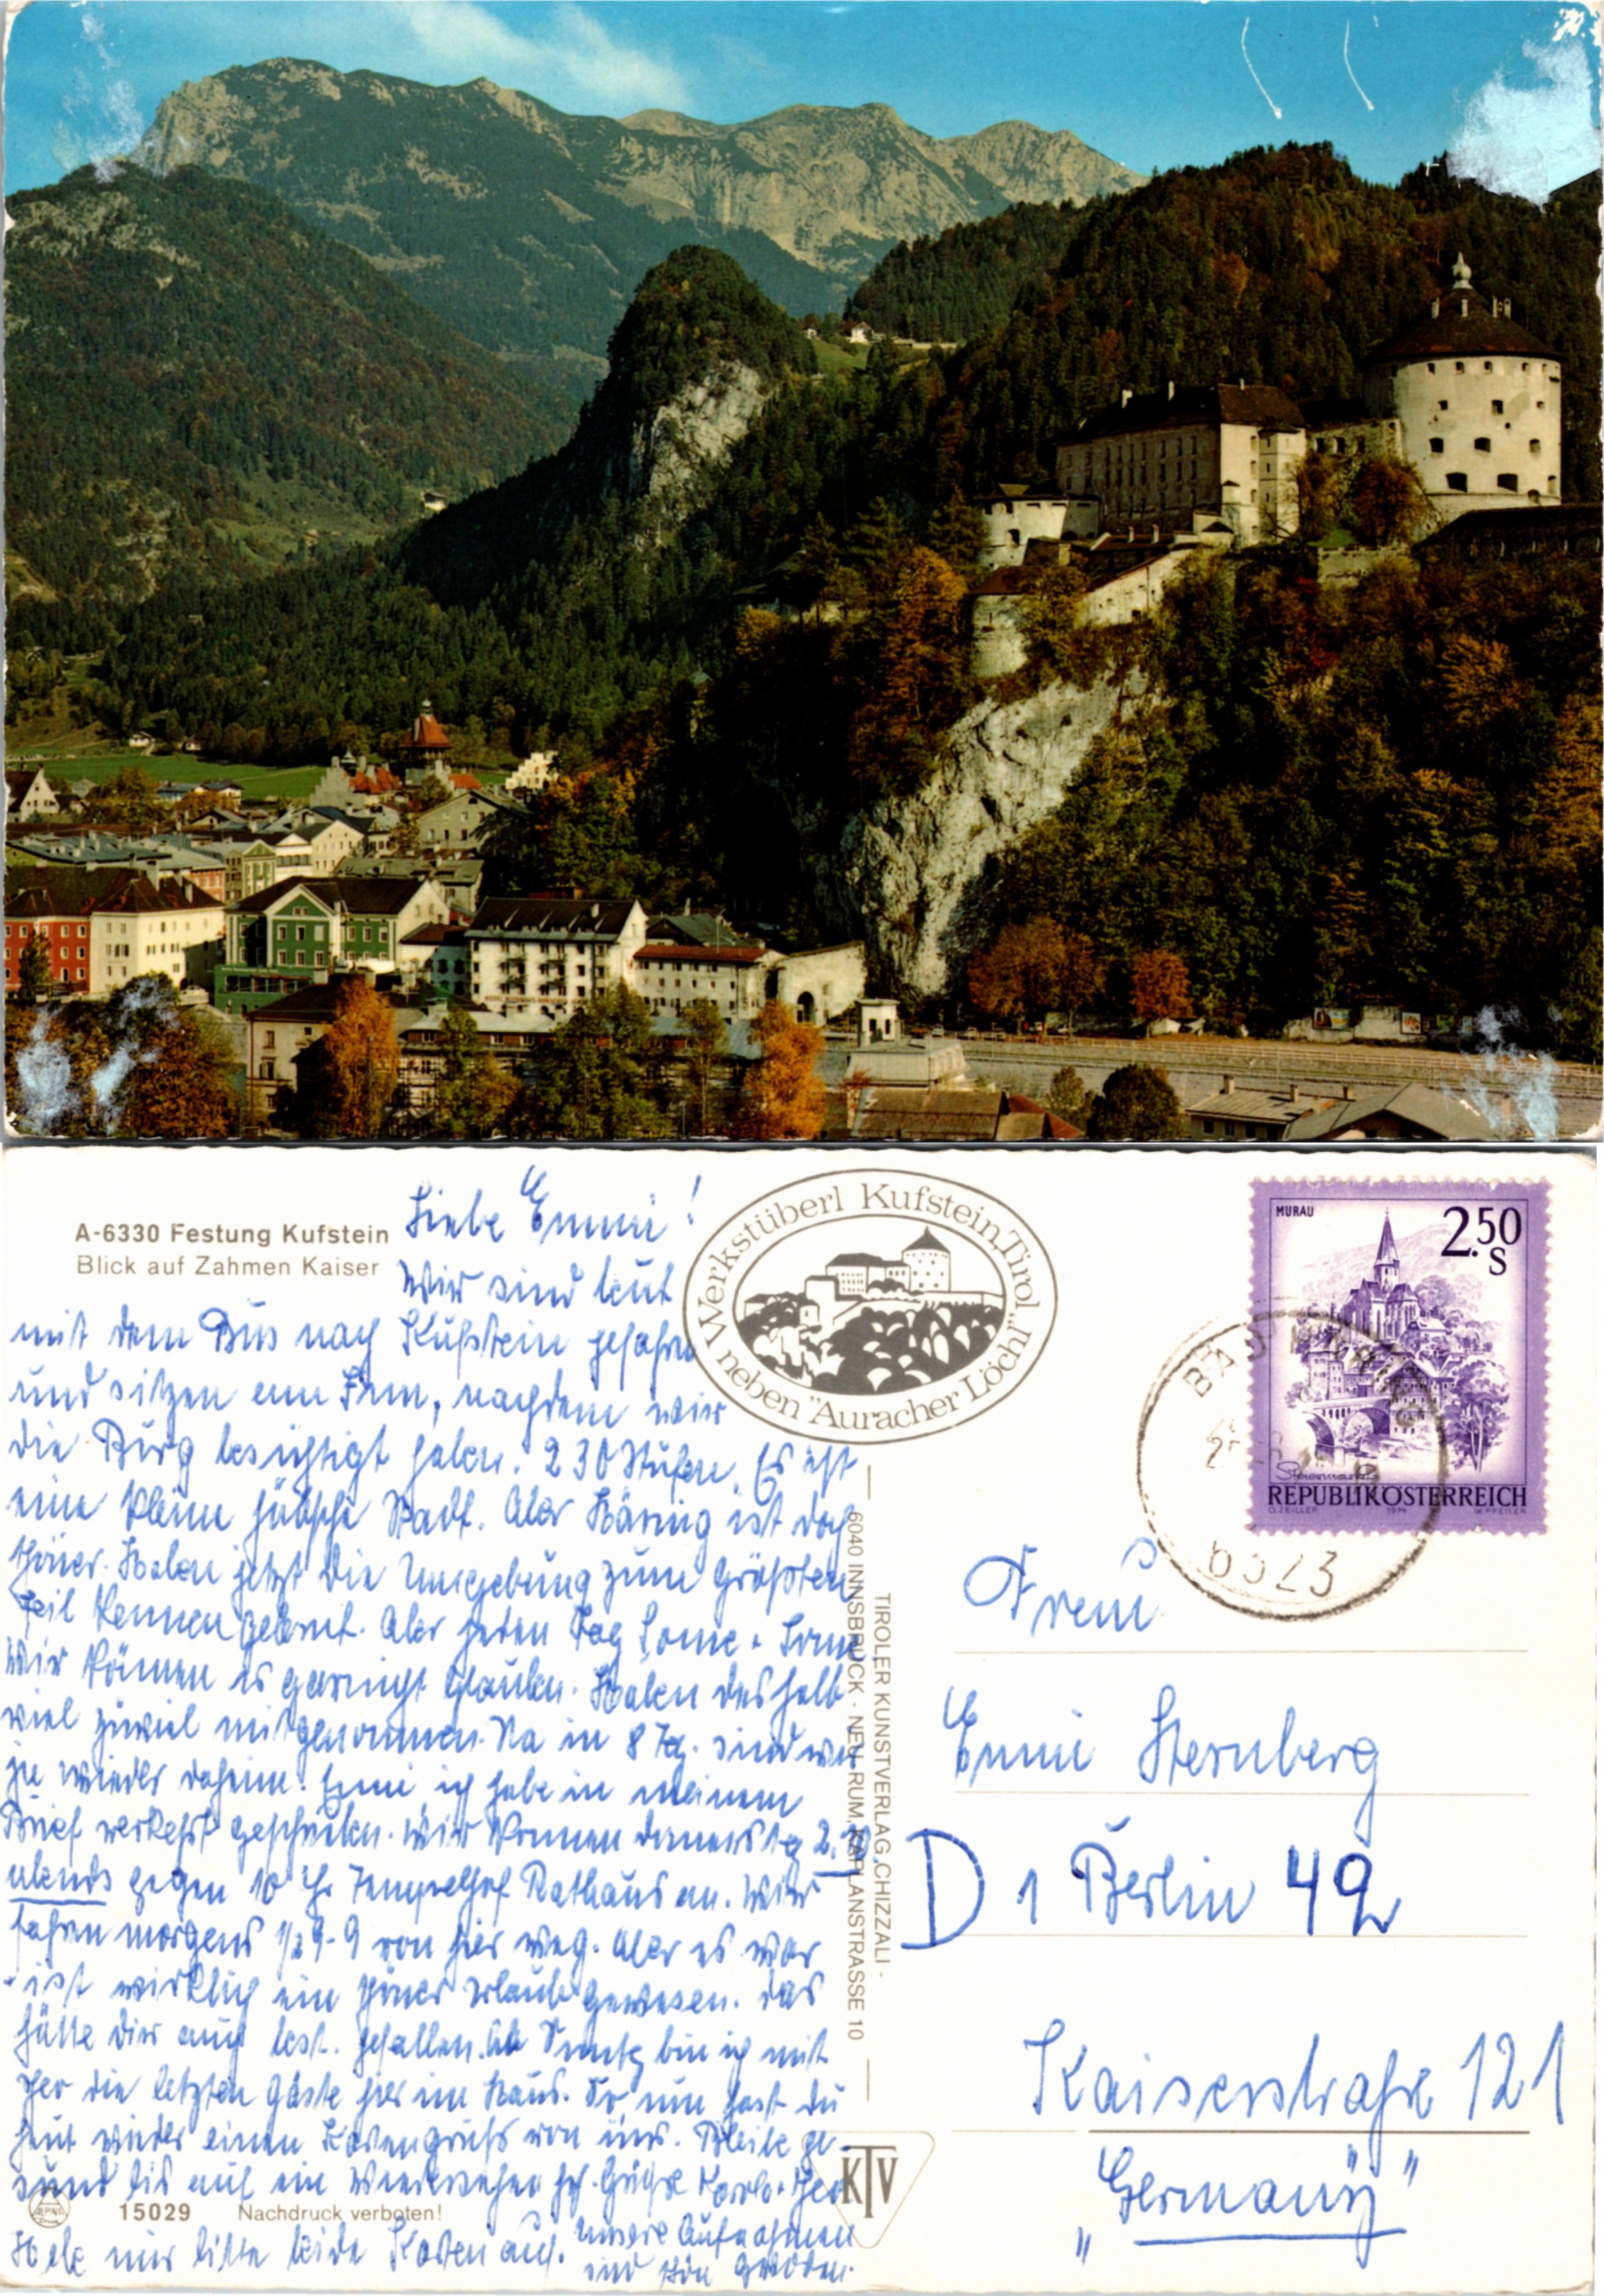 A-6330 Festung Kufstein
Blick auf Zahmen Kaiser
Liebe Emmi!
Wir sind heut
mit dem Bus nach Kufstein gefahren
und sitzen am Inn, nachdem wir
die Burg besichtigt haben. 230 Stufen. Es ist
eine kleine hübsche Stadt. Aber Häring ist doch
schöner. Haben jetzt die Umgebung zum größten
Teil kennen gelernt. Aber jeden Tag Sonne + Sonne
Wir können es garnicht glauben. Haben deshalb
viel zuviel mitgenommen. Na in 8 Tg. sind wir
ja wieder daheim. Emmi ich habe in meinem
Brief verkehrt geschrieben. Wir kommen Donnerstag 2.
abends gegen 10 Uhr Tempelhof Rathaus an. Wir
fahren morgens 1/2 9-9 von hier weg. Aber es war
ist wirklich ein schöner Urlaub gewesen. Das
hätte dir auch best. gefallen. Ab bin ich mit
Theo die letzten Gäste hier im Haus. So nun hast du
heut wieder einen Kartengruß von uns. Bleibe ge-
sund bis auf ein Wiedersehen Grüße + Theo
Hebe mir bitte beide Karten auf. Unsere Aufnahmen
sind schön geworden.
15029 Nachdruck verboten!
Werkstüberl Kufstein, Tirol
neben "Auracher Löchl"
TIROLER KUNSTVERLAG CHIZZALI -
6040 INNSBRUCK - NEU-RUM, KAPLANSTRASSE 10
KTV
MURAU
2.50
S
Steiermark
REPUBLIK ÖSTERREICH
O. ZEILLER 1974 W. PFEILER
BAD HÄRING
6323
Frau
Emmi Sternberg
D 1 Berlin 49
Kaiserstraße 121
"Germany"